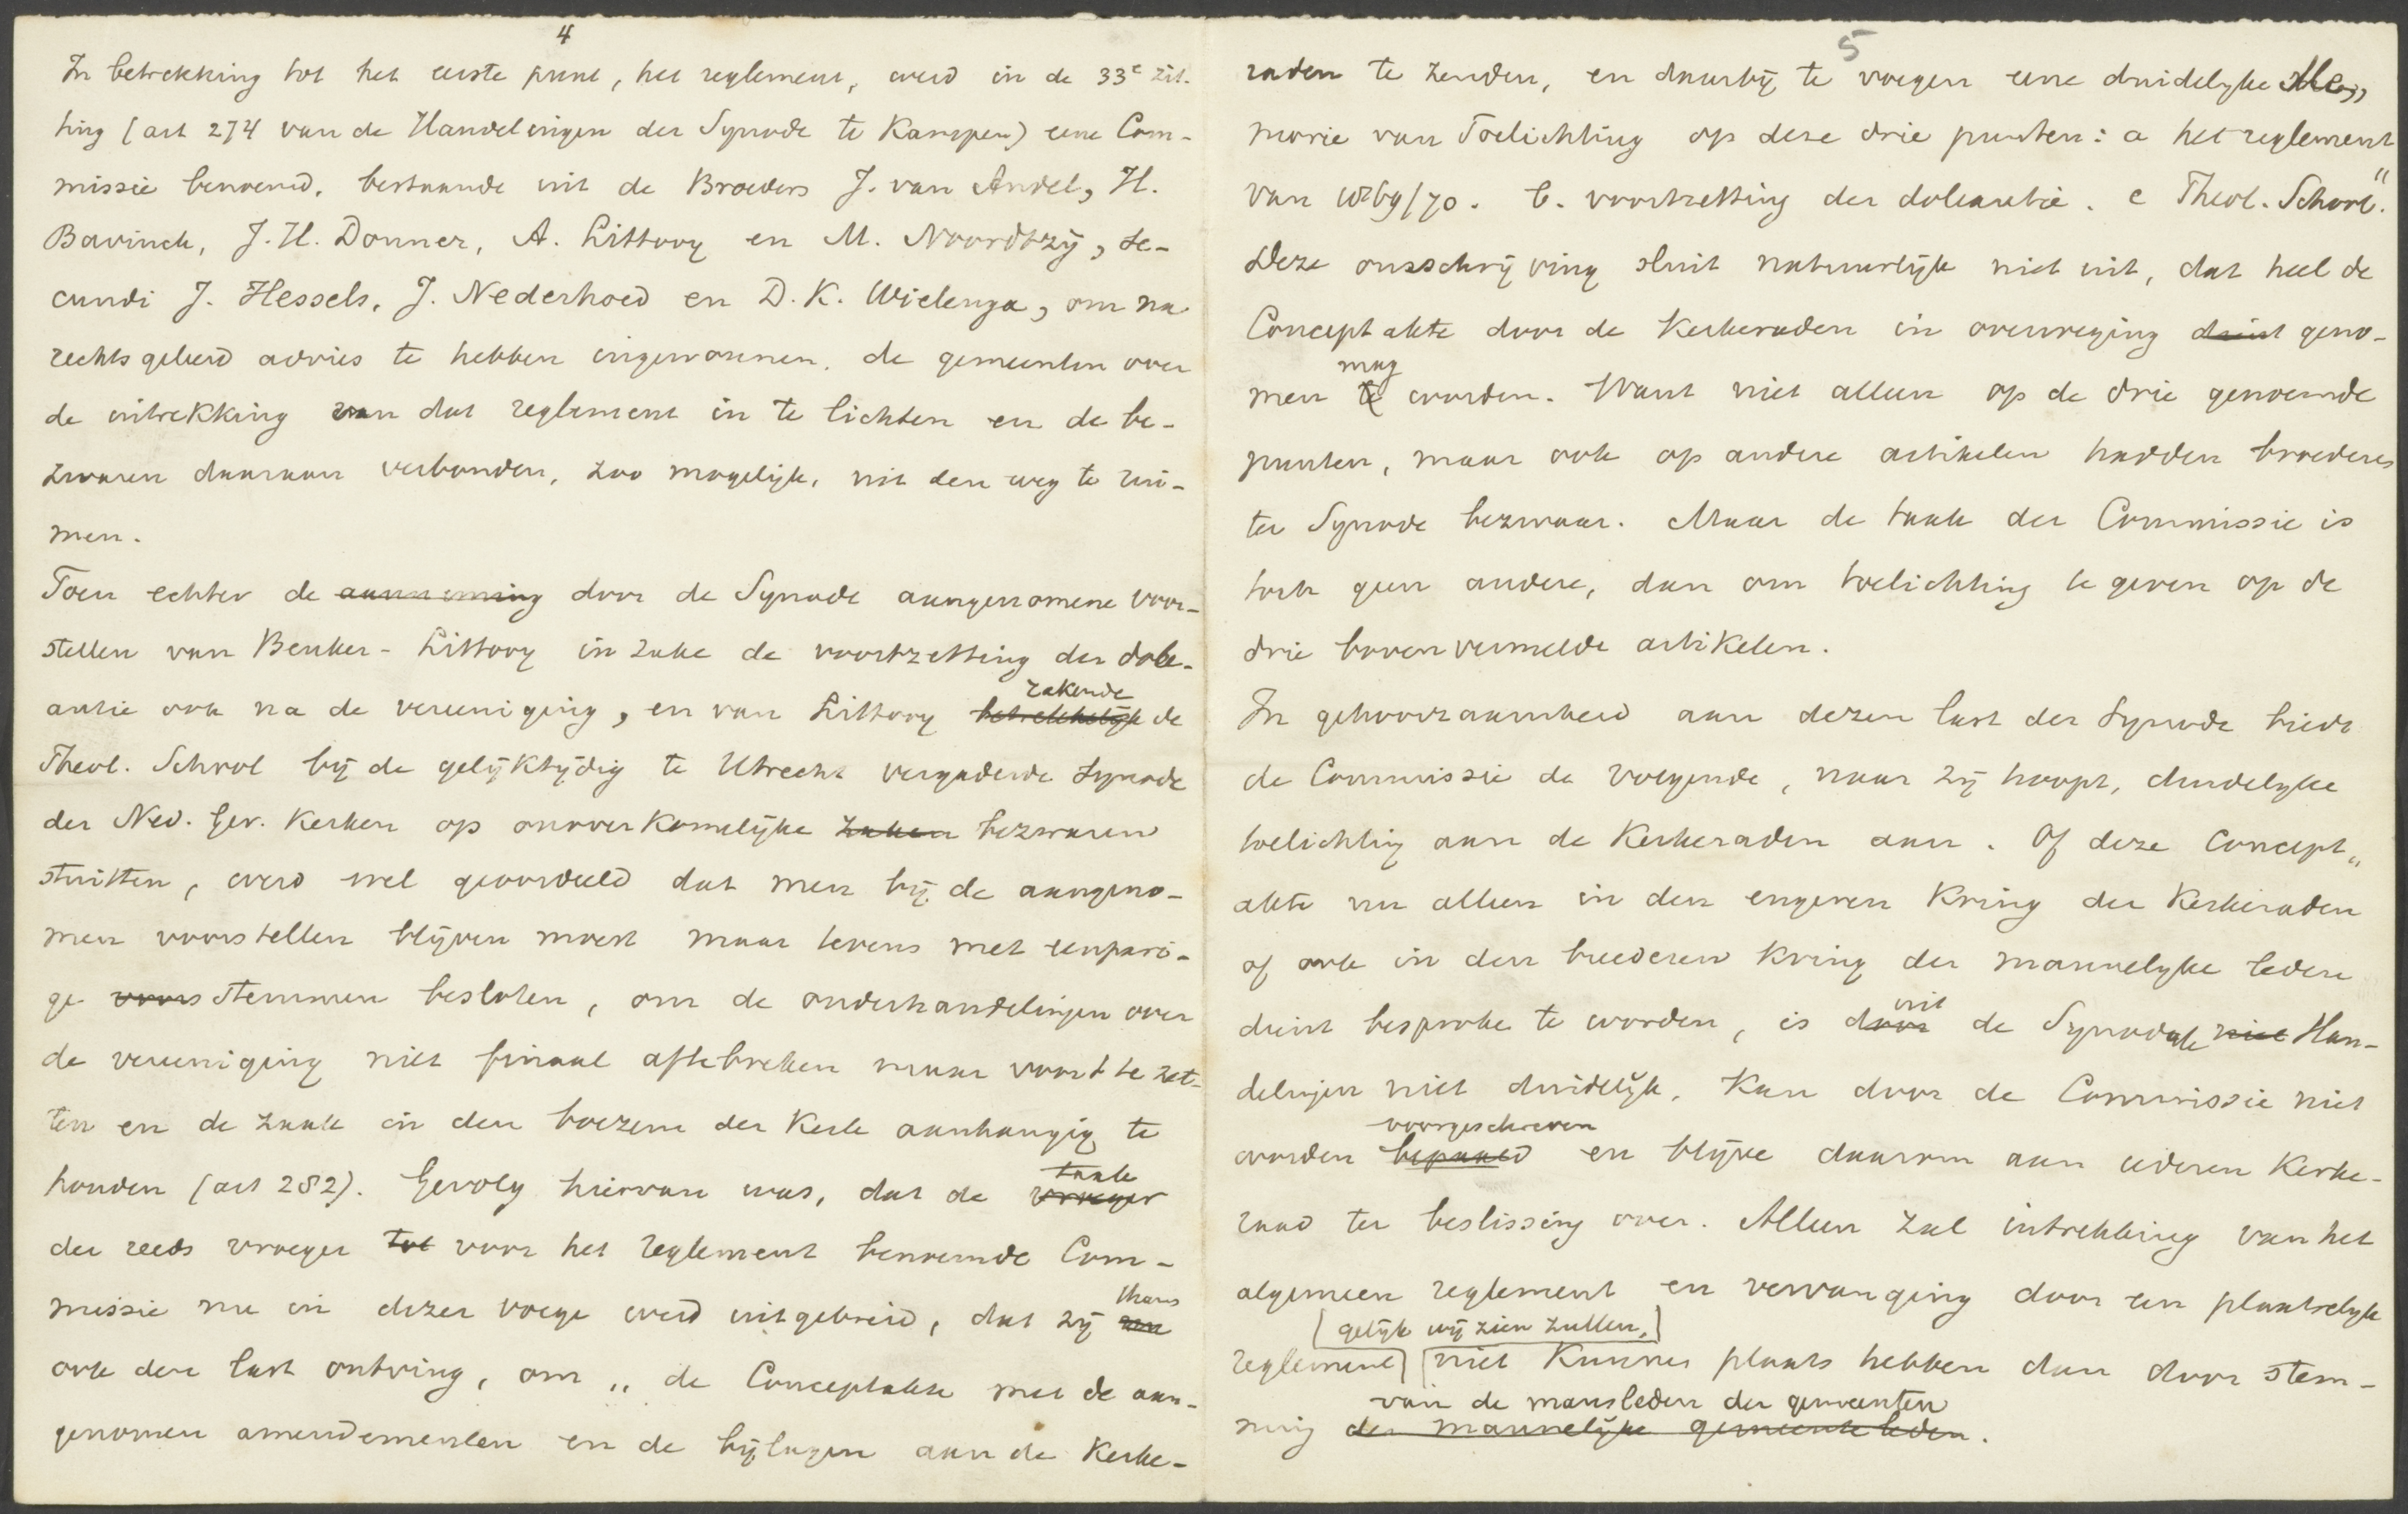 4
In betrekking tot het eerste punt, het reglement, werd in de 33e zit-
ting (art 274 van de Handelingen der Synode te Kampen) eene Com-
missie benoemd, bestaande uit de Broeders J. van Andel, H.
Bavinck, J. H. Donner, A. Littooy en M. Noordtzij, se-
cundi J. Hessels, J. Nederhoed en D. K. Wielenga, om na
rechtsgeleerd advies te hebben ingewonnen, de gemeenten over
de intrekking van dat reglement in te lichten en de be-
zwaren daaraan verbonden, zoo mogelijk, uit den weg te rui-
men.
Toen echter de aanneming door de Synode aangenomene voor-
stellen van Beuker-Littooy in zake de voortzetting der dole-
antie ook na de vereeniging, en van Littooy betrekkelijk de
zakende
Theol. School bij de gelijktijdig te Utrecht vergaderde Synode
der Ned. Ger. Kerken op onoverkomelijke zaken bezwaren
stuitten, werd wel geoordeeld dat men bij de aangeno-
men voorstellen blijven moest maar tevens met eenpari-
ge voors stemmen besloten, om de onderhandelingen over
de vereeniging niet finaal aftebreken maar voort te zet-
ten en de zaak in den boezem der Kerk aanhangig te
houden (art 282). Gevolg hiervan was, dat de vroeger
taak
der reeds vroeger tot voor het reglement benoemde Com-
missie nu in dezer voege werd uitgebreid, dat zij nu
thans
ook den last ontving, om „de Conceptakte met de aan-
genomen amendementen en de bijlagen aan de Kerke-
5
raden te zenden, en daarbij te voegen eene duidelyke Me„
morie van Toelichting op deze drie punten: a het reglement
van 1869/70. b. voortzetting der doleantie. c Theol. School."
Deze omschrijving sluit natuurlijk niet uit, dat heel de
Conceptakte door de Kerkeraden in overweging dient geno-
mag
men te worden. Want niet alleen op de drie genoemde
punten, maar ook op andere artikelen hadden broeders
ter Synode bezwaar. Maar de taak der Commissie is
toch geen andere, dan om toelichting te geven op de
drie bovenvermelde artikelen.
In gehoorzaamheid aan dezen last der Synode biedt
de Commissie de volgende, naar zij hoopt, duidelyke
toelichting aan de Kerkeraden aan. Of deze Concept„
akte nu alleen in den engeren Kring der Kerkeraden
of ook in den breederen Kring der mannelyke leden
uit
dient besproke te worden, is door de Synodale niet Han-
delingen niet duidelijk, kan door de Commissie niet
voorgeschreven
worden bepaald en blijve daarom aan iederen Kerke-
raad ter beslissing over. Alleen zal intrekking van het
algemeen reglement en vervanging door een plaatselyk
(gelijk wij zien zullen,)
reglement niet kunnen plaats hebben dan door stem-
van de mansleden der gemeenten
ming der mannelijke gemeenteleden.